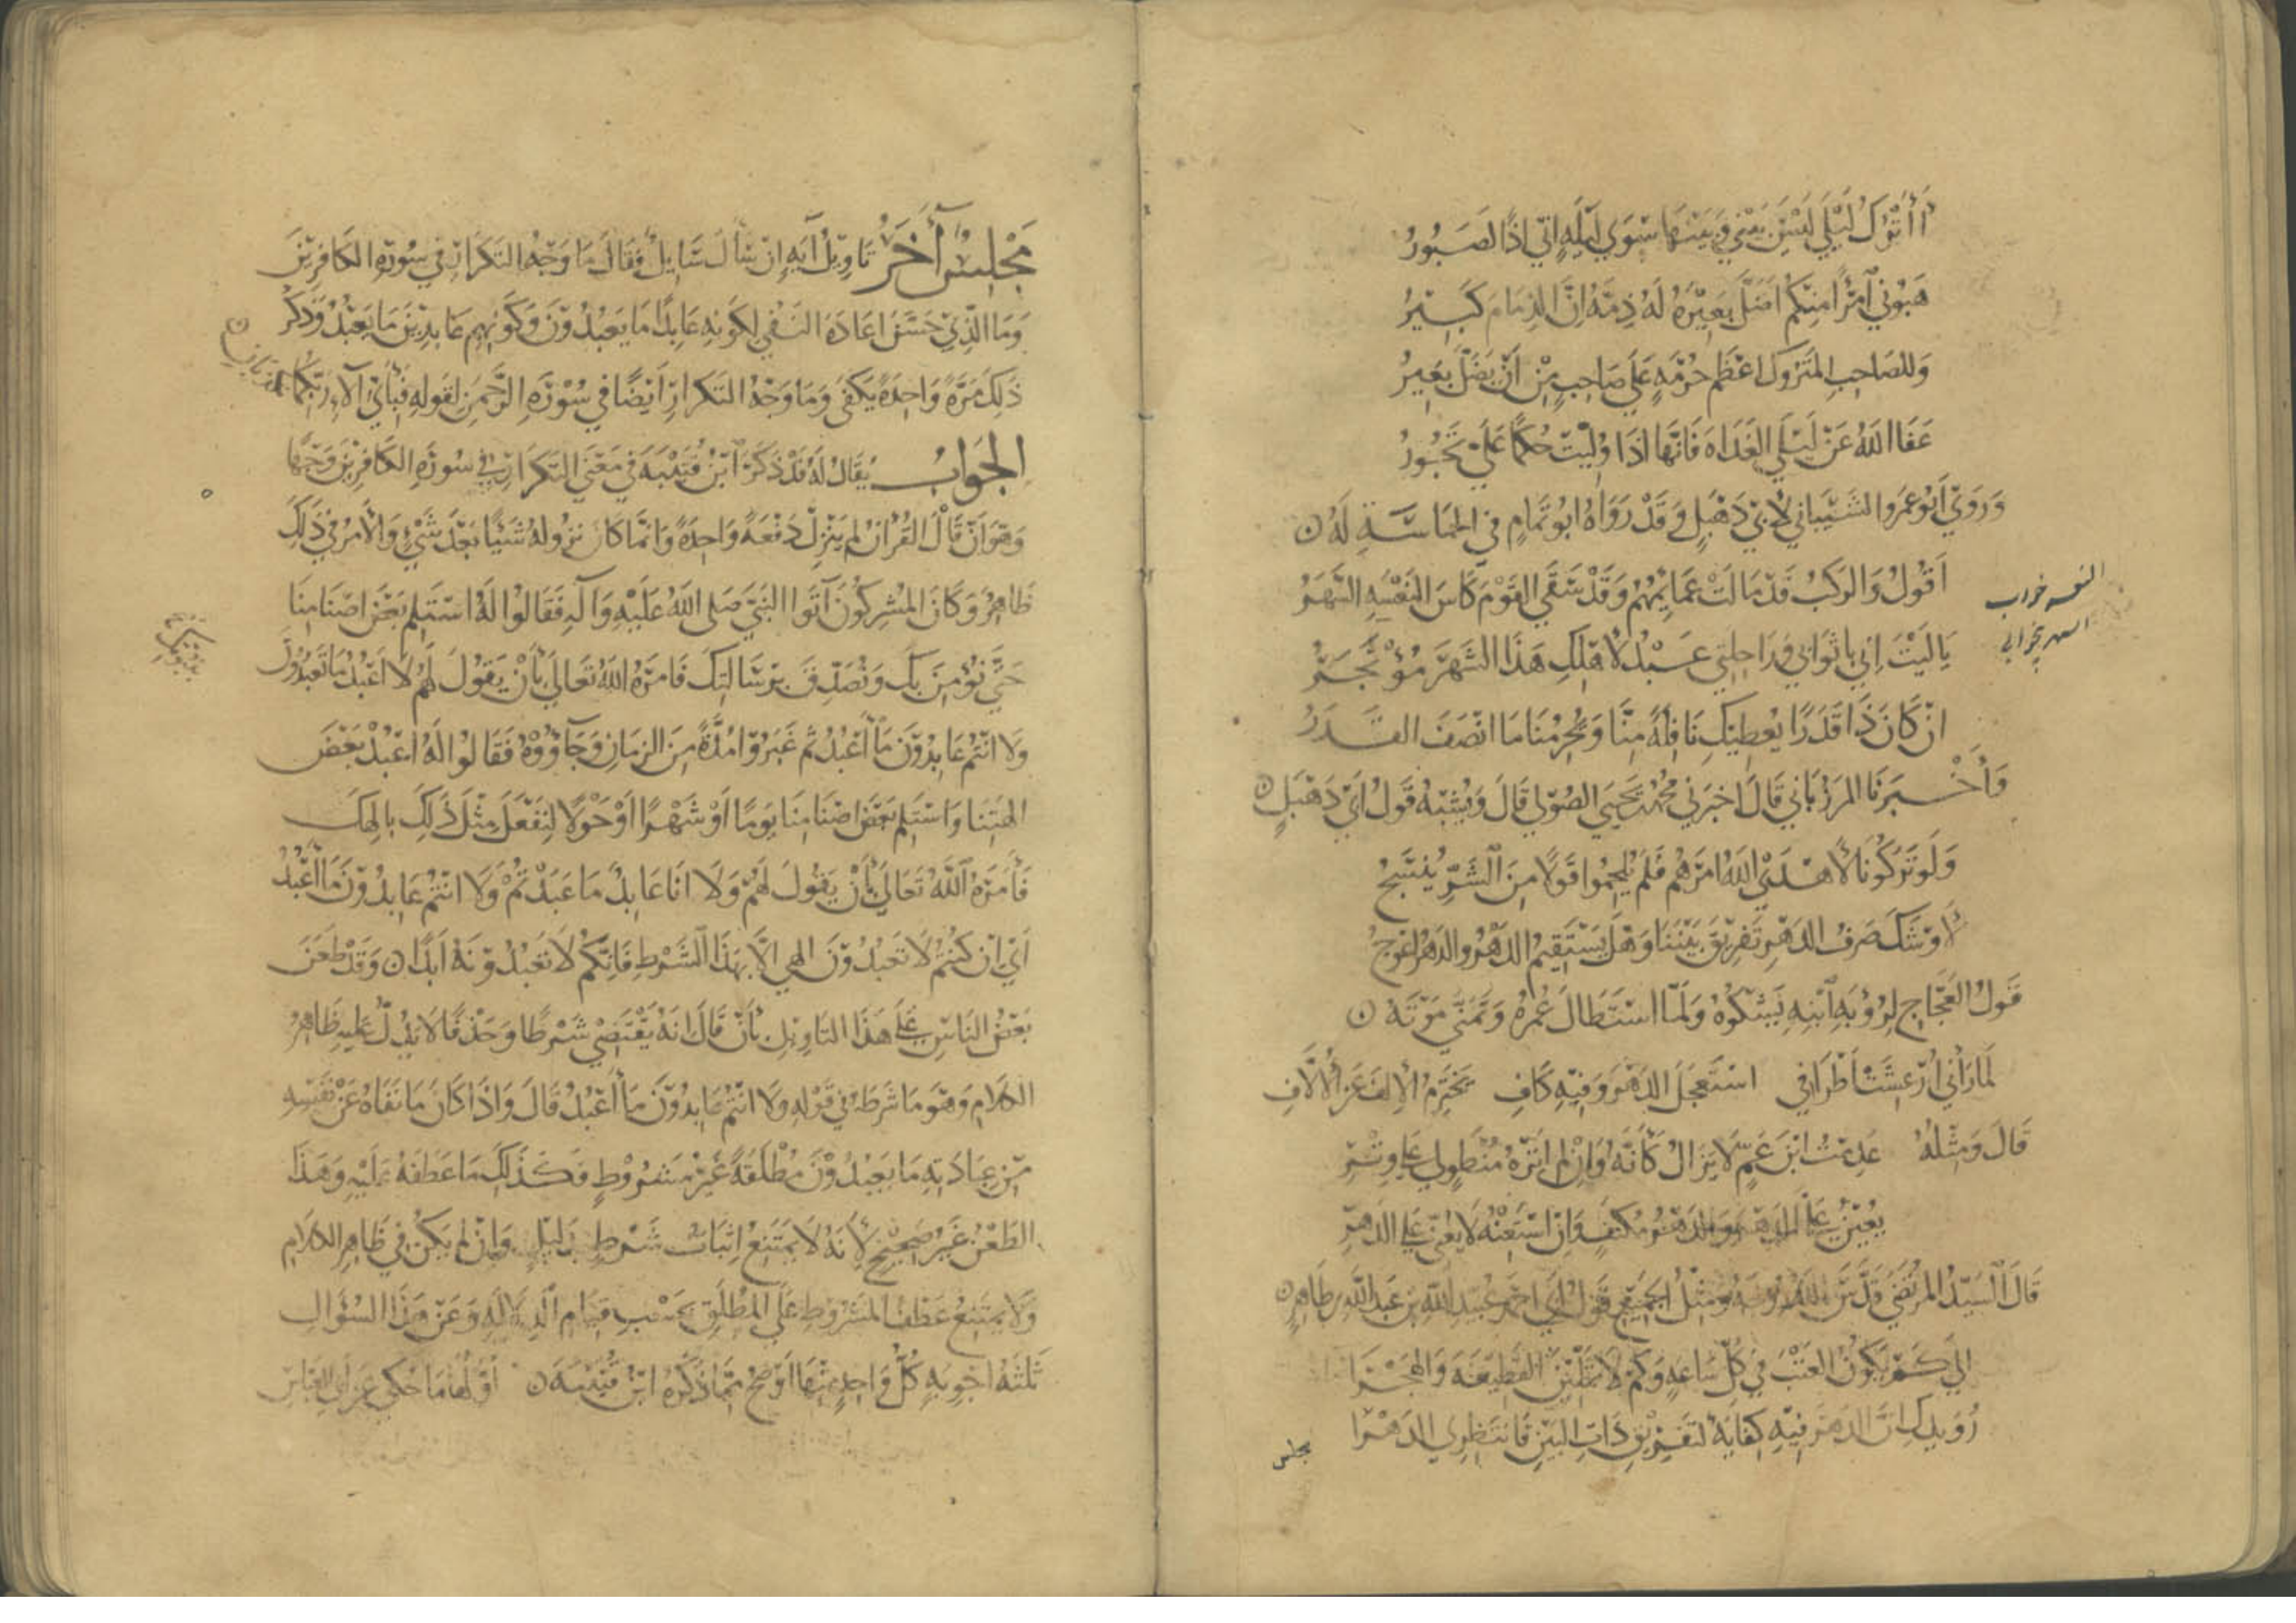 أأترك ليلى ليس بيني وبينها سوى ليلة إني إذا لصبور
هبوني امرأ منكم أضل بعيره له ذمة إن الذمام كبير
وللصاحب المتروك أعظم حرمة على صاحب من أن يضل بعير
عفا الله عن ليلى الغداة فانها اذا وليت حكما علي تجور
وروى أبو عمرو الشيباني لأبي دهبل وقد رواه ابو تمام في الحماسة له
اقول والركب قد مالت عمايمهم وقد سقى القوم كاس النعسة السهر
يا ليت اني باثوابي وراحلتي عبد لأهلك هذا الشهر مؤتجر
ان كان ذا قدرا يعطيك نافلة منا ويحرمنا ما انصف القدر
وأخبرنا المرزباني قال اخبرني محمد بن يحيى الصولي قال ويشبه قول أبي دهبل
ولو تركونا لا هدى الله امرهم فلم يلحموا قولا من الشر ينسج
لأوشك صرف الدهر تفريق بيننا وهل يستقيم الدهر والدهر اعوج
قول العجاج لرؤبة ابنه يشكوه ولما استطال عمره وتمنى موته
لما رآني ارعشت أطرافي استعجل الدهر وفيه كاف يخترم الإلف عن الألاف
قال ومثله عدمت ابن عم لا يزال كأنه وإن لم أتره منطو لي على وتر
يعين علي الدهر والدهر مكتف وان استعنه لا يعني على الدهر
قال السيد المرتضى قدس الله روحه ومثل الجميع قول أبي احمد عبيد الله بن عبد الله بن طاهر
إلى كم يكون العتب في كل ساعة وكم لا تملين القطيعة والهجرا
رويدك ان الدهر فيه كفاية لتفريق ذات البين فانتظري الدهرا
مجلس
مجلس آخر تاويل آية إن سأل سايل فقال ما وجه التكرار في سورة الكافرين
وما الذي حسن اعادة النفي لكونه عابدا ما يعبدون وكونهم عابدين ما يعبد وذكر
ذلك مرة واحدة يكفي وما وجه التكرار أيضا في سورة الرحمن لقوله فبأي آلاء ربكما تكذبان
الجواب يقال له قد ذكر ابن قتيبة في معنى التكرار في سورة الكافرين وجها
وهو أن قال القرآن لم ينزل دفعة واحدة وانما كان نزوله شيئا بعد شيء والأمر في ذلك
ظاهر وكان المشركون أتوا النبي صلى الله عليه وآله فقالوا له استلم بعض اصنامنا
حتى نؤمن بك ونصدق برسالتك فامره الله تعالى بأن يقول لهم لا اعبد ما تعبدون
ولا انتم عابدون ما أعبد ثم غبروا مدة من الزمان وجاؤوه فقالوا له اعبد بعض
الهتنا واستلم بعض اصنامنا يوما أو شهرا أو حولا لنفعل مثل ذلك بالهك
فأمره الله تعالى بأن يقول لهم ولا انا عابد ما عبدتم ولا انتم عابدون ما اعبد
أي إن كنتم لا تعبدون الهي الا بهذا الشرط فانكم لا تعبدونه ابدا وقد طعن
بعض الناس على هذا التاويل بأن قال انه يقتضي شرطا وحذفا لا يدل عليه ظاهر
الكلام وهو ما شرطه في قوله ولا انتم عابدون ما أعبد قال واذا كان ما نفاه عن نفسه
من عبادته ما يعبدون مطلقة غير مشروط فكذلك ما عطفه عليه وهذا
الطعن غير صحيح لأنه لا يمتنع إثبات شرط بدليل وإن لم يكن في ظاهر الكلام
ولا يمتنع عطف المشروط على المطلق بحسب قيام الدلالة وعن هذا السؤال
ثلثة اجوبة كل واحد منها اوضح مما ذكره ابن قتيبة أولها ما حكي عن أبي العباس